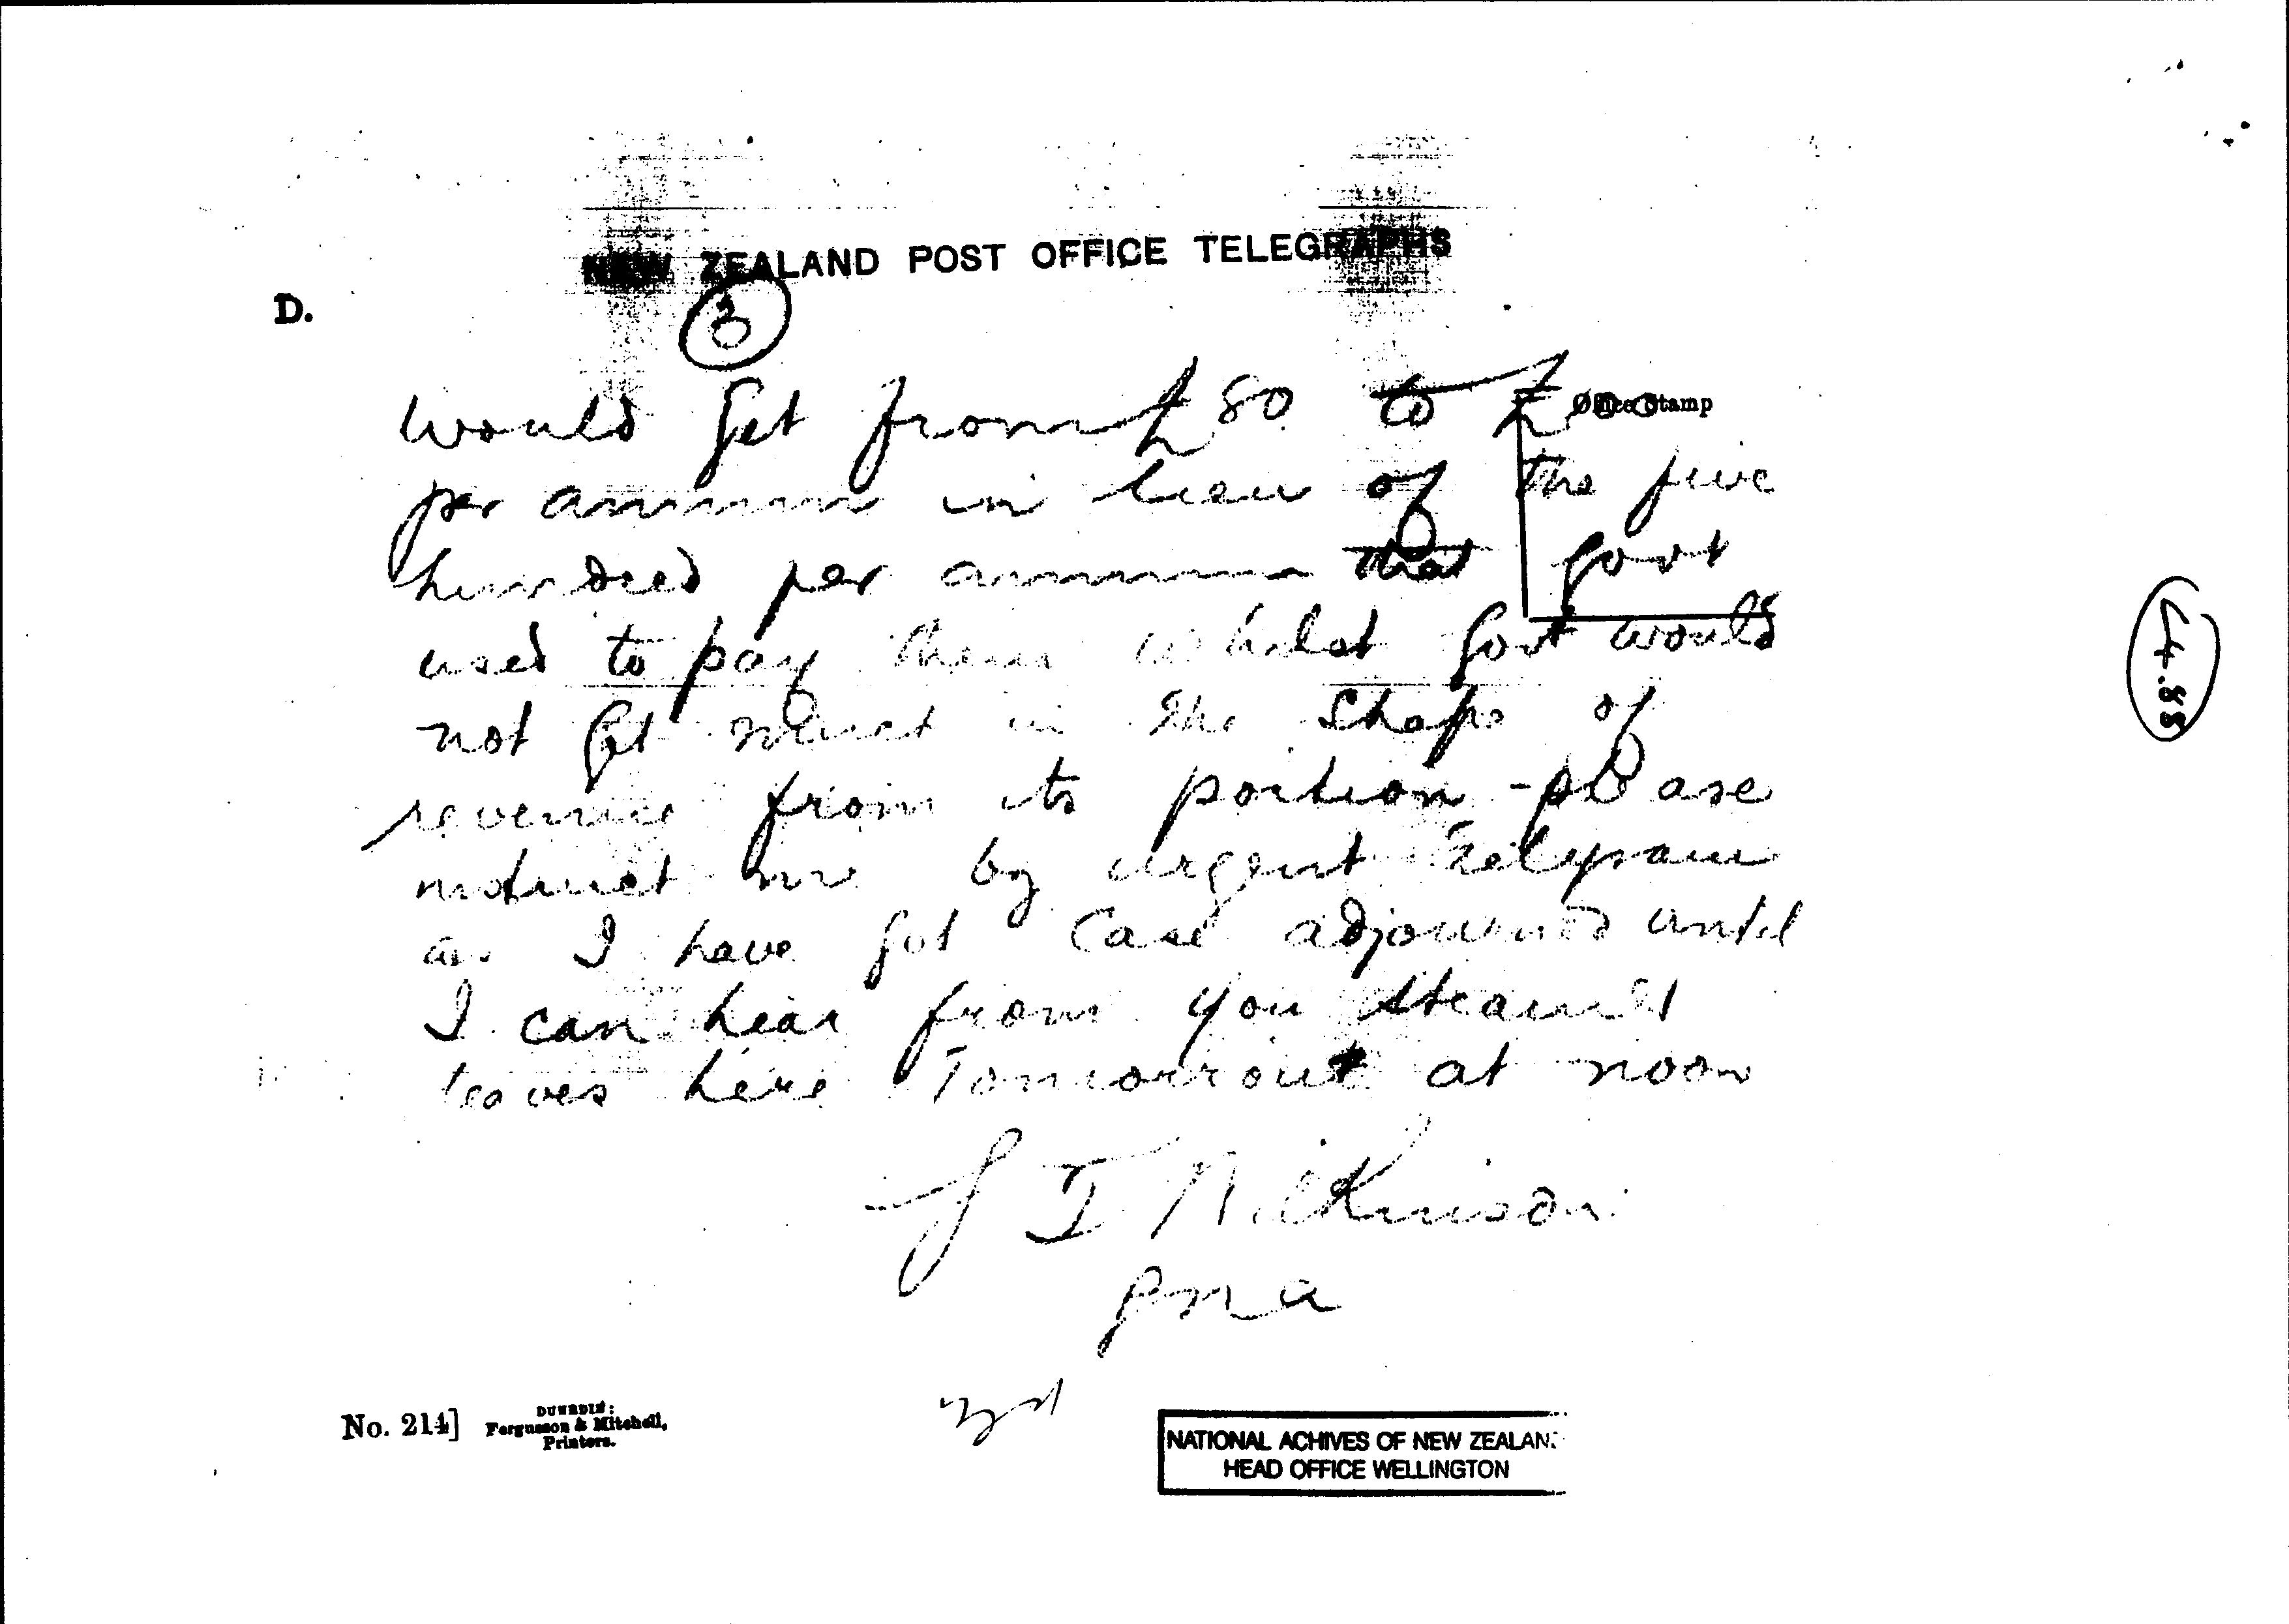 NEW ZEALAND POST OFFICE TELEGRAPHS
D.
3
Office Stamp
would get from £80 to £
per annum in lieu of the five
hundred per annum that govt
used to pay them whilst Govt would
not get much in the shape of
revenue from its portion - please
instruct me by urgent telegram
as I have got case adjourned until
I can hear from you steamer
leaves here Tomorrow at noon
Wilkinson
No. 214]
DUNEDIN:
Fergusson & Mitchell,
Printers.
NATIONAL ACHIVES OF NEW ZEALAN
HEAD OFFICE WELLINGTON